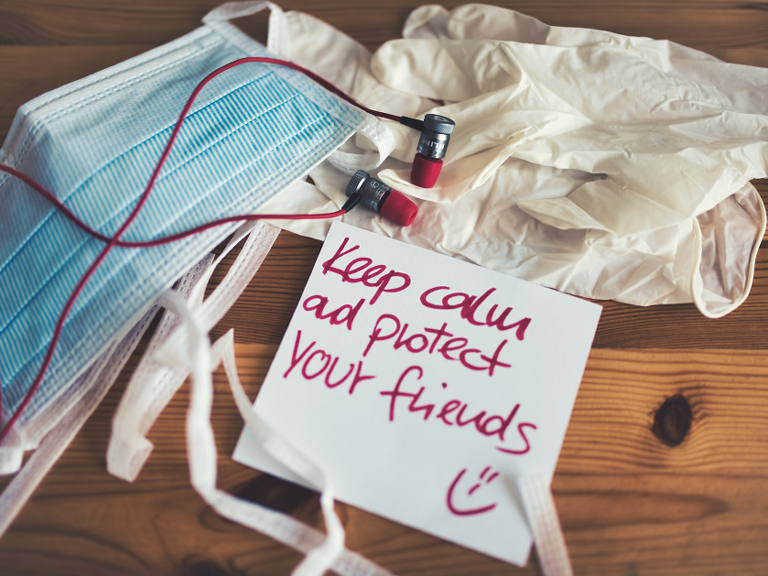 Keep calm
and protect
your friends